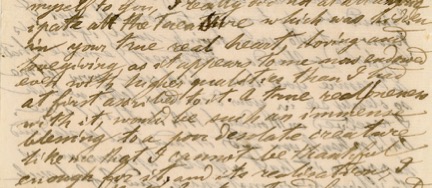 myself to you, I really did not at a
all the treasure which was hidden
in your true real heart, loving and
forgiving as it appears to me now endowed
even with higher qualities than I had
at first ascribed to it. A true
with it, would be such an immense
blessing to a poor desolate creature
like me that I cannot be thankful
enough for it, and its realization, I